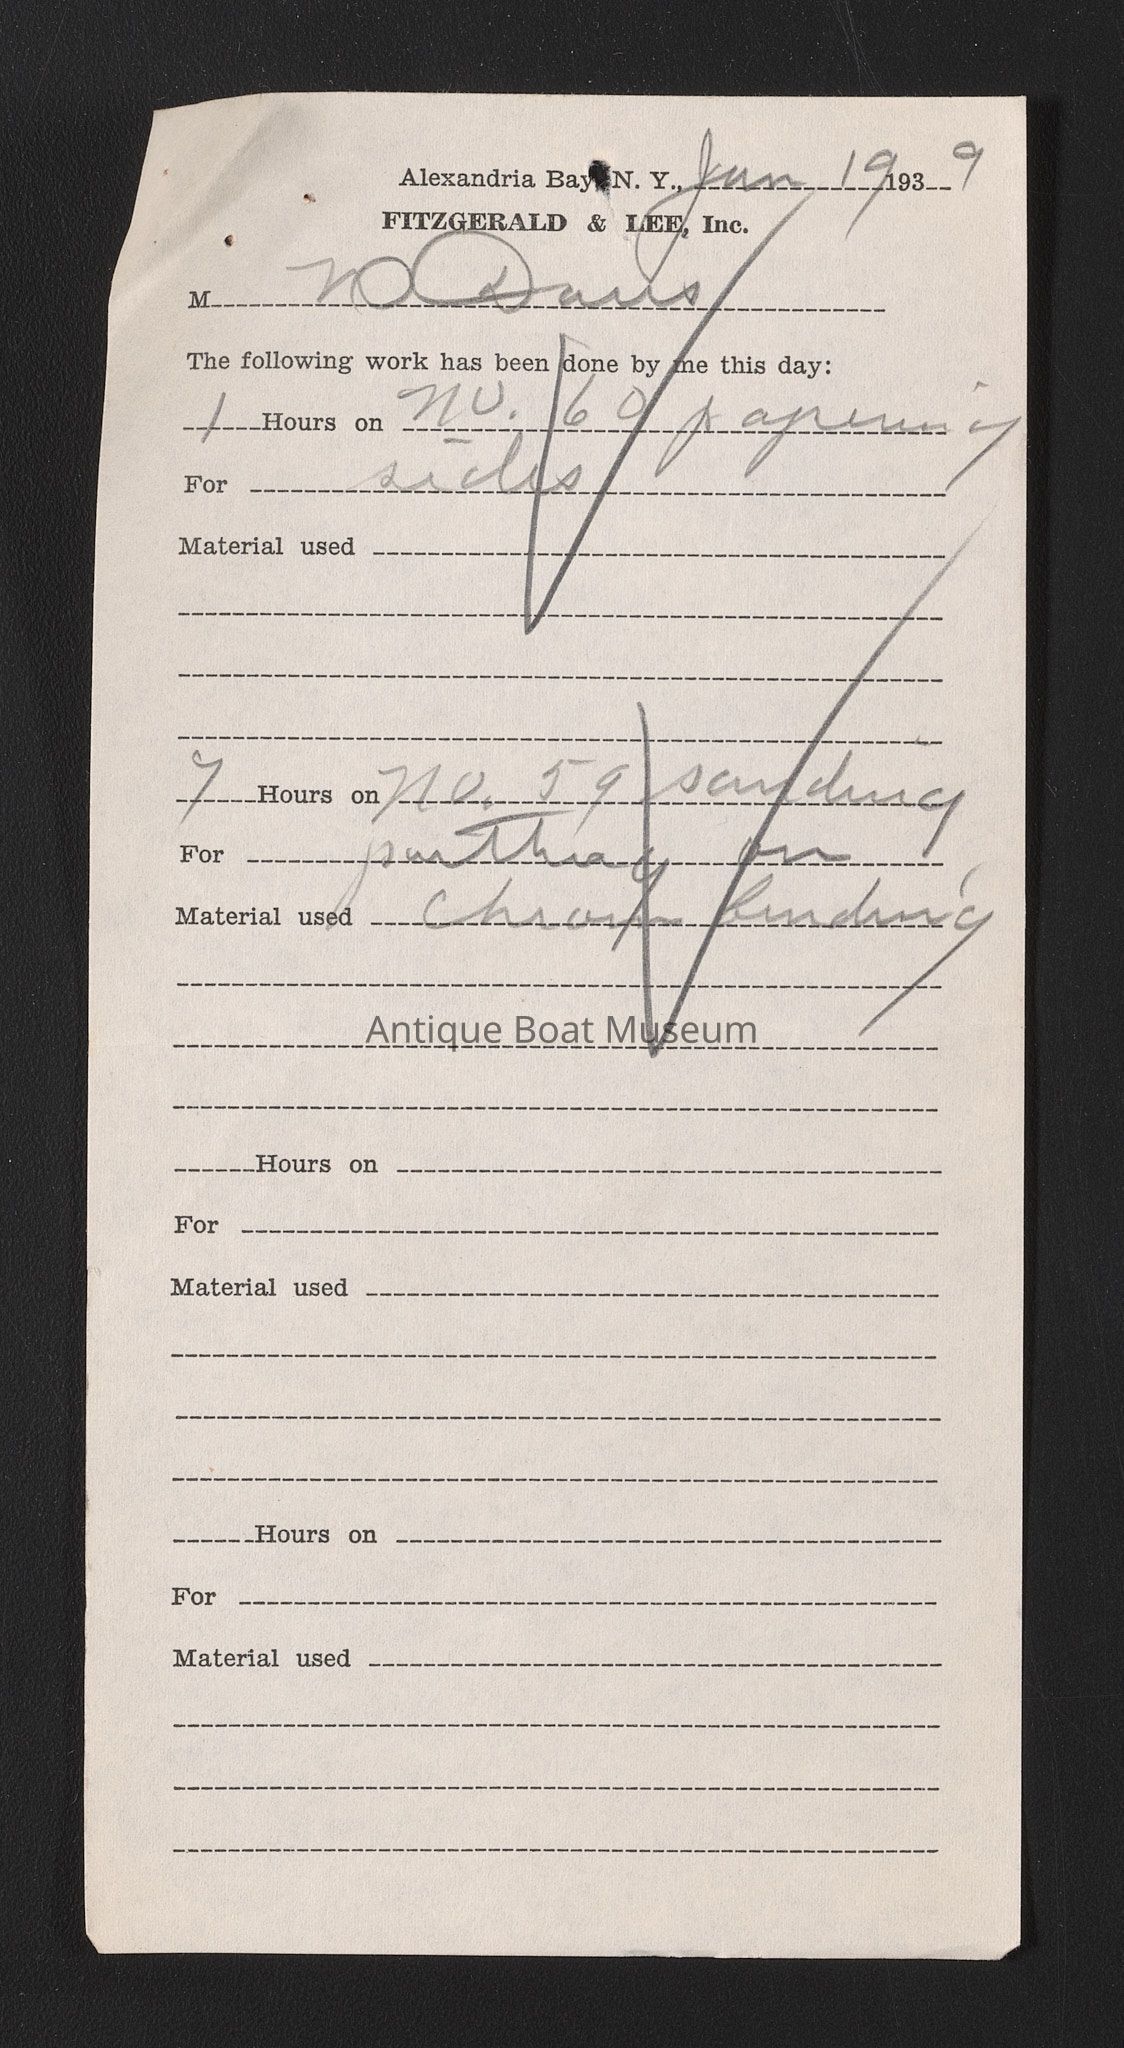 Alexandria Bay, N. Y., Jan 19 1939
FITZGERALD & LEE, Inc.
M Davis
The following work has been done by me this day:
1 Hours on No. 60 papering
For sides
Material used
7 Hours on No. 59 sanding
For on
Material used
Antique Boat Museum
Hours on
For
Material used
Hours on
For
Material used